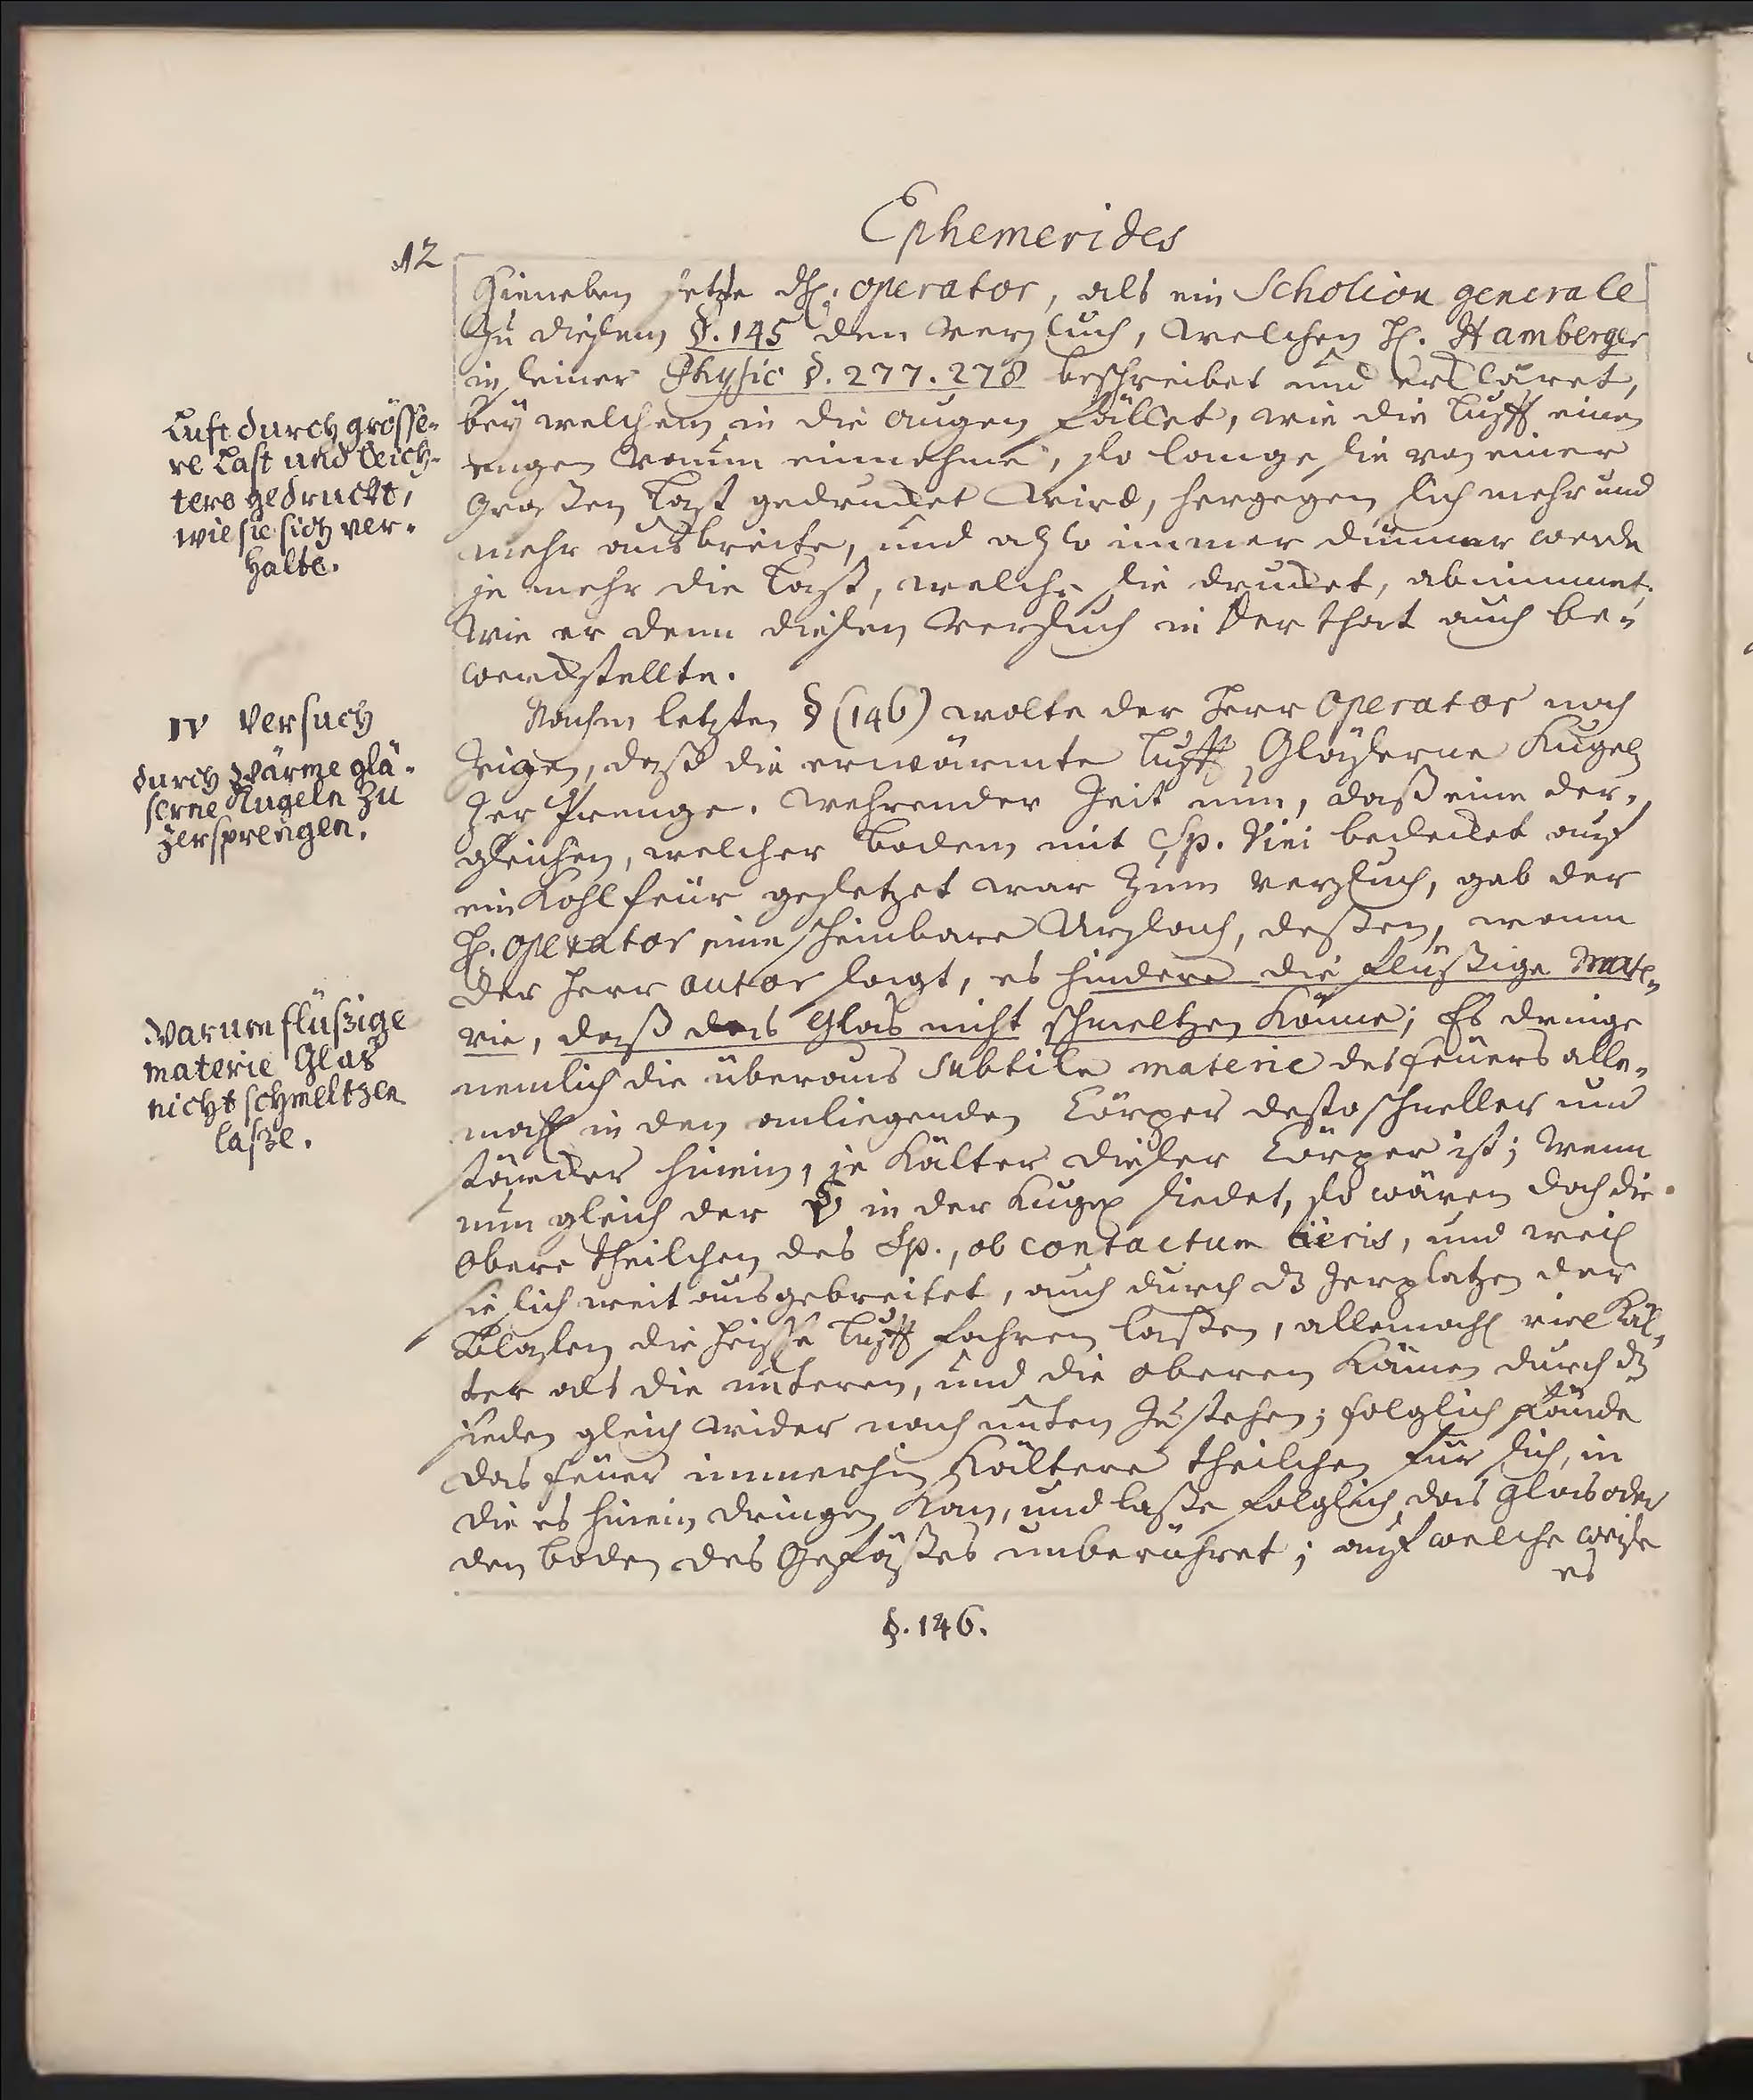 Ephemerides
12
Hieneben setzte dH. operator, als ein Scholion generale
zu diesem §. 145 den Versuch, welchen H. Hamberger
in seiner Physic §. 277. 278 beschreibet und erkläret,
bey welchem in die augen fället, wie die Lufft einen
engen Raum einnehme, so lange sie von einer
großen Last gedrucket wird, hergegen sich mehr und
mehr ausbreite, und also immer dünner werde
je mehr die Last, welche sie drucket, abnimmet,
wie er denn diesen Versuch in der that auch be-
werckstellte.
Luft durch grösse-
re Last und leich-
tere gedruckt,
wie sie sich ver-
halte.
Nachm letzten § (146) wolte der Herr Operator noch
zeigen, daß die erwärmte Lufft Gläserne Kugeln
zersprenge. Wehrender Zeit nun, daß eine der-
gleichen, welcher Bodem mit Sp. Vini bedecket auf
ein Kohlfeür gesetzet war zum Versuch, gab der
H. Operator eine scheinbare Ursach, deßen, wann
der Herr autor sagt, es hindere die flüßige Mate-
rie, daß das Glas nicht schmeltzen könne; Es dringe
nemlich die überaus subtile materie des feüers alle-
mahl in den anliegenden Cörper desto schneller und
stärcker hinein, je kälter dieser Cörper ist; Wenn
nun gleich der in der Kugel siedet, so wären doch die
obere theilchen des Sp., ob contactum äeris, und weil
sie sich weit ausgebreitet, auch durch dz Zerplatzen der
Blasen die heisse Lufft fahren laßen, allemahl viel käl-
ter als die unteren, und die oberen kämen durch dz
sieden gleich wider nach unten zu stehen; folglich fände
das feüer immerhin kältere theilchen für sich, in
die es hinein dringen kan, und laße folglich das glas oder
den boden des Gefäßes unberühret; auf welche weise
es
IV Versuch
durch Wärme glä-
serne Kugeln zu
zersprengen.
Warum flüßige
materie Glas
nicht schmeltzen
laße.
§. 146.